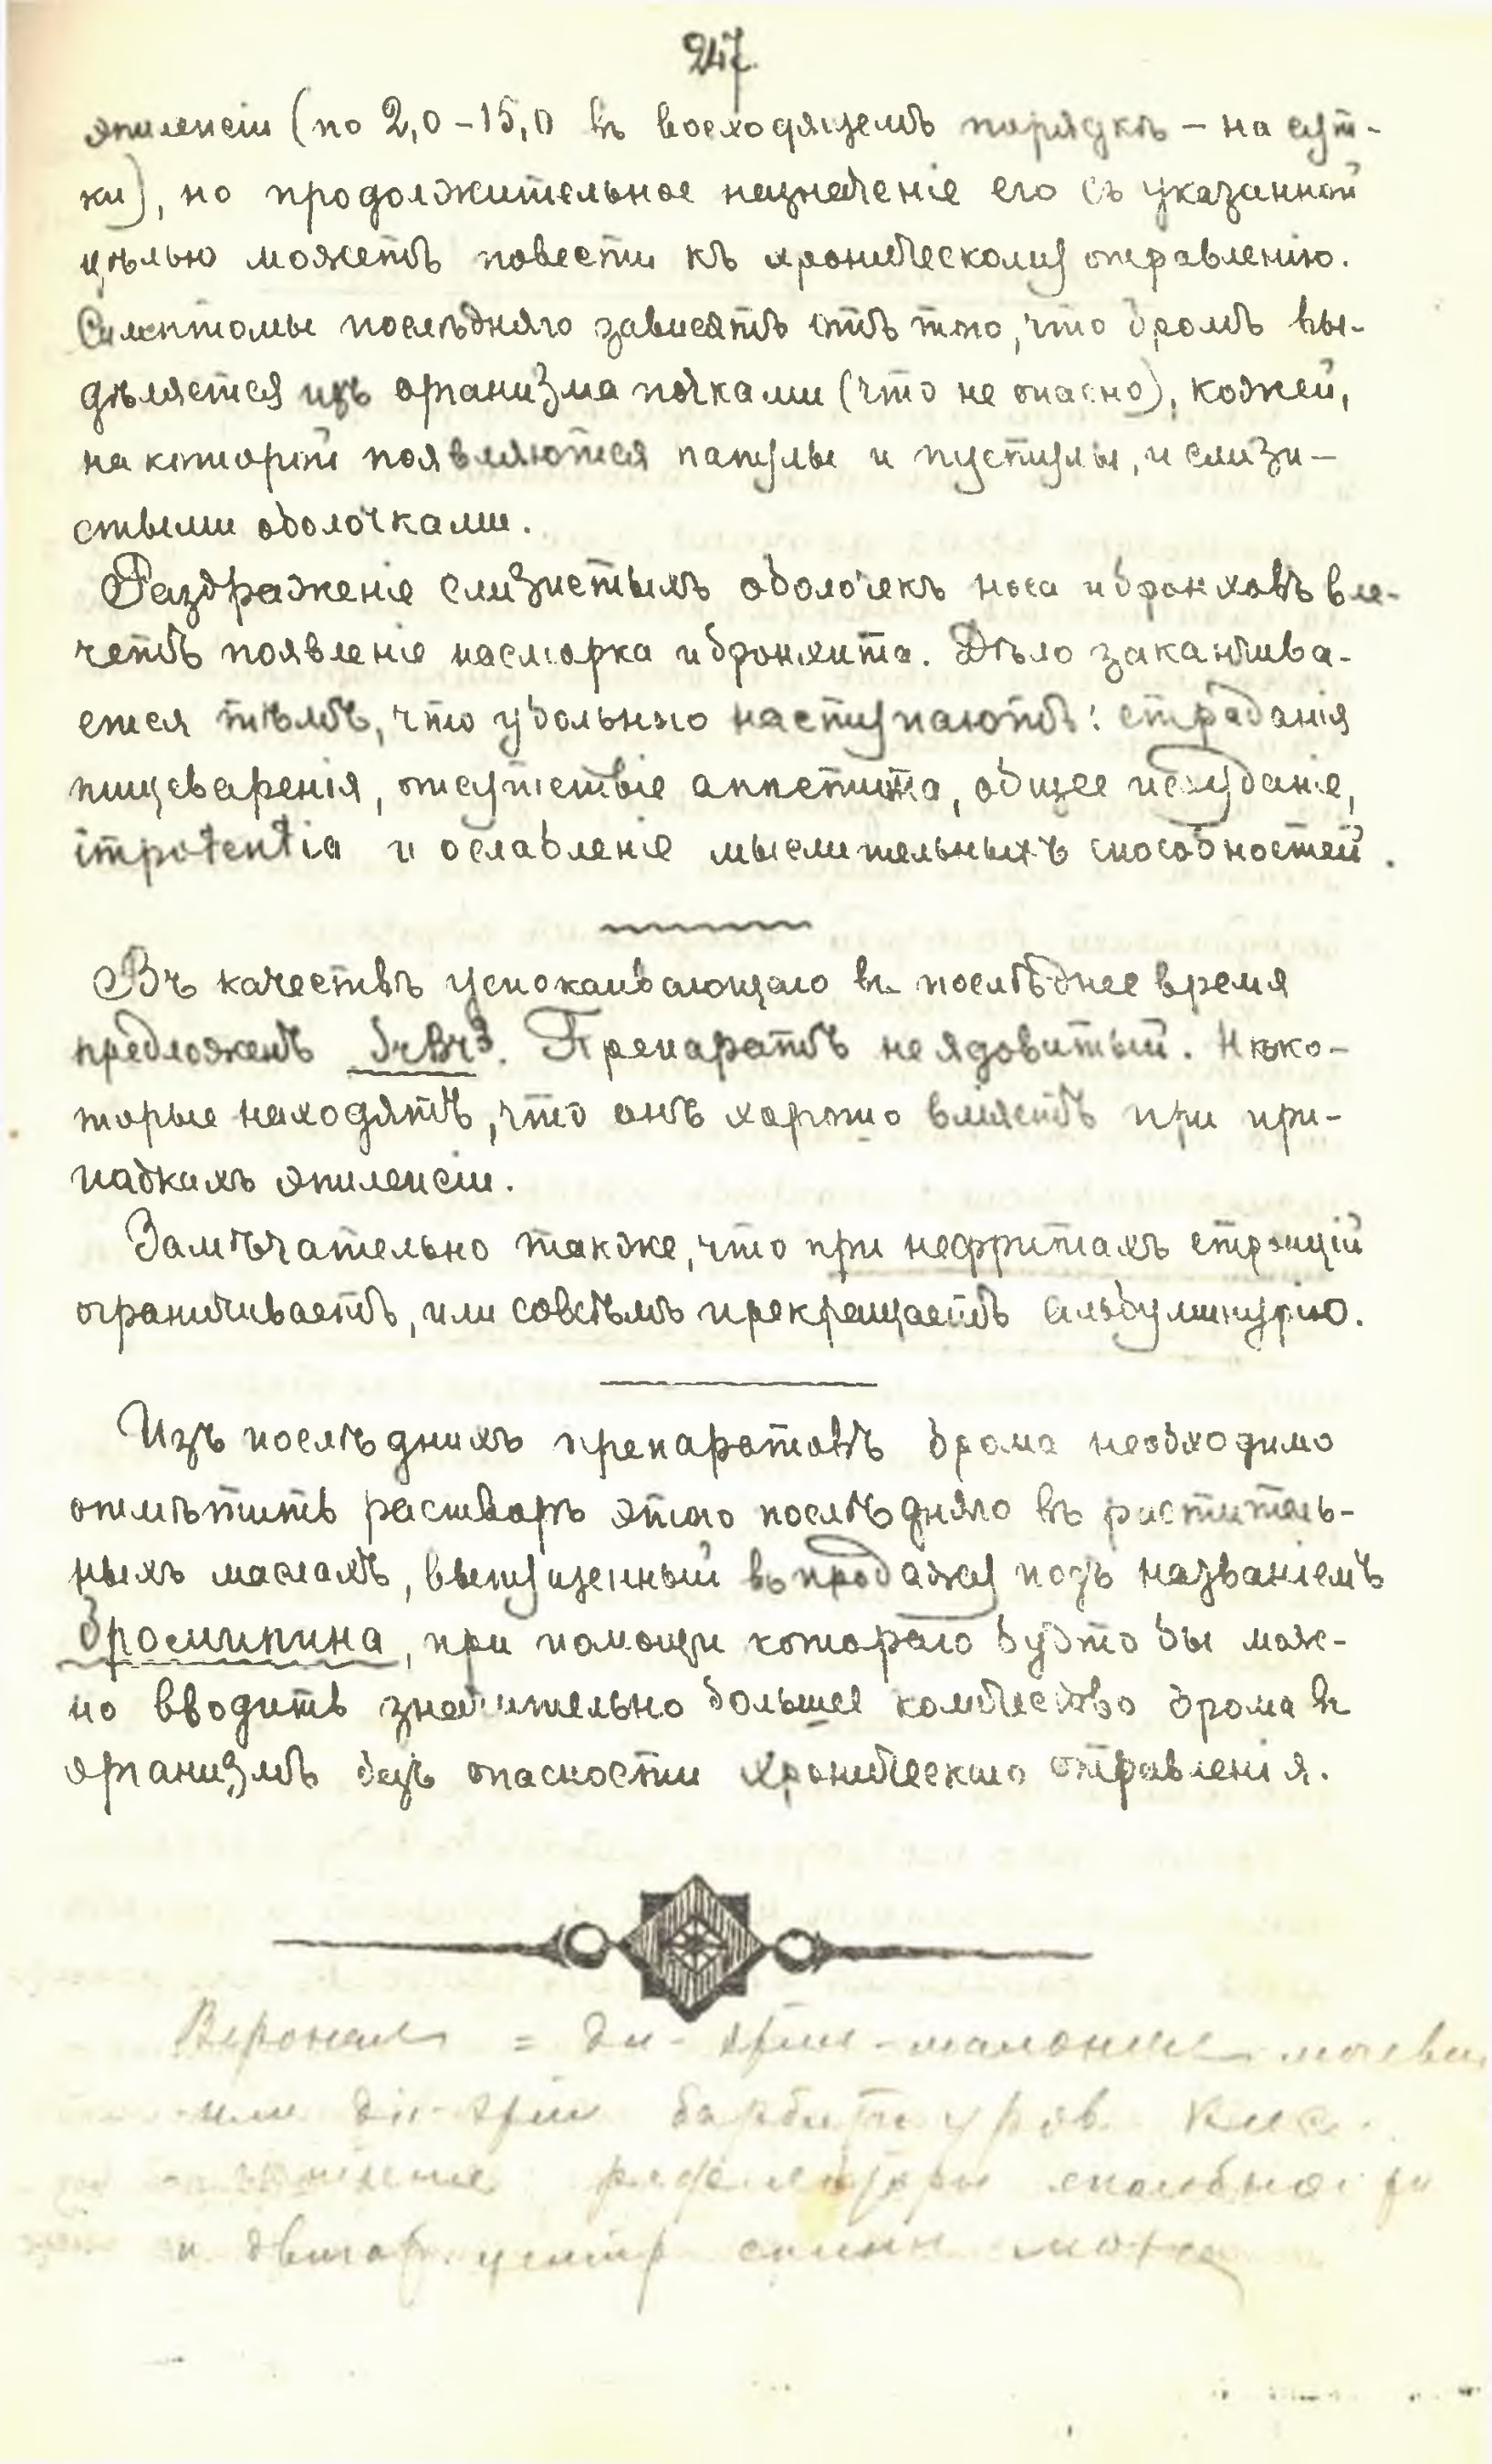 247.
эпилепсіи (по 2,0–15,0 въ восходящемъ порядкѣ – на сут-
ки), но продолжительное назначеніе его съ указанной
цѣлью можетъ повести къ хроническому отравленію.
Симптомы послѣдняго зависятъ отъ того, что бромъ вы-
дѣляется изъ организма почками (что не опасно), кожей,
на которой появляются папулы и пустулы, и слизи–
стыми оболочками.
Раздраженіе слизистыхъ оболочекъ носа и бронховъ вле-
четъ появленіе насморка и бронхита. Дѣло заканчива-
ется тѣмъ, что у больного наступаютъ: страданія
пищеваренія, отсутствіе аппетита, общее исхуданіе,
impotentia и ослабленіе мыслительныхъ способностей.
Въ качествѣ успокаивающаго въ послѣднее время
предложенъ SrBr³. Препаратъ неядовитый. Нѣко–
торые находятъ, что онъ хорошо вліяетъ при при–
падкахъ эпилепсіи.
Замѣчательно также, что при нефритахъ стронцій
ограничиваетъ, или совсѣмъ прекращаетъ альбуминурію.
Изъ послѣднихъ препаратовъ брома необходимо
отмѣтить растворъ этого послѣдняго въ раститель-
ныхъ маслахъ, выпущенный въ продажу подъ названіемъ
бромипина, при помощи котораго будто бы мож-
но вводить значительно большее количество брома въ
организмъ безъ опасности хроническаго отравленія.
Веронал = ди-этил-малонил мочеви
или ди-этил барбитуров. кис.
и двигат. центр спинн мозга